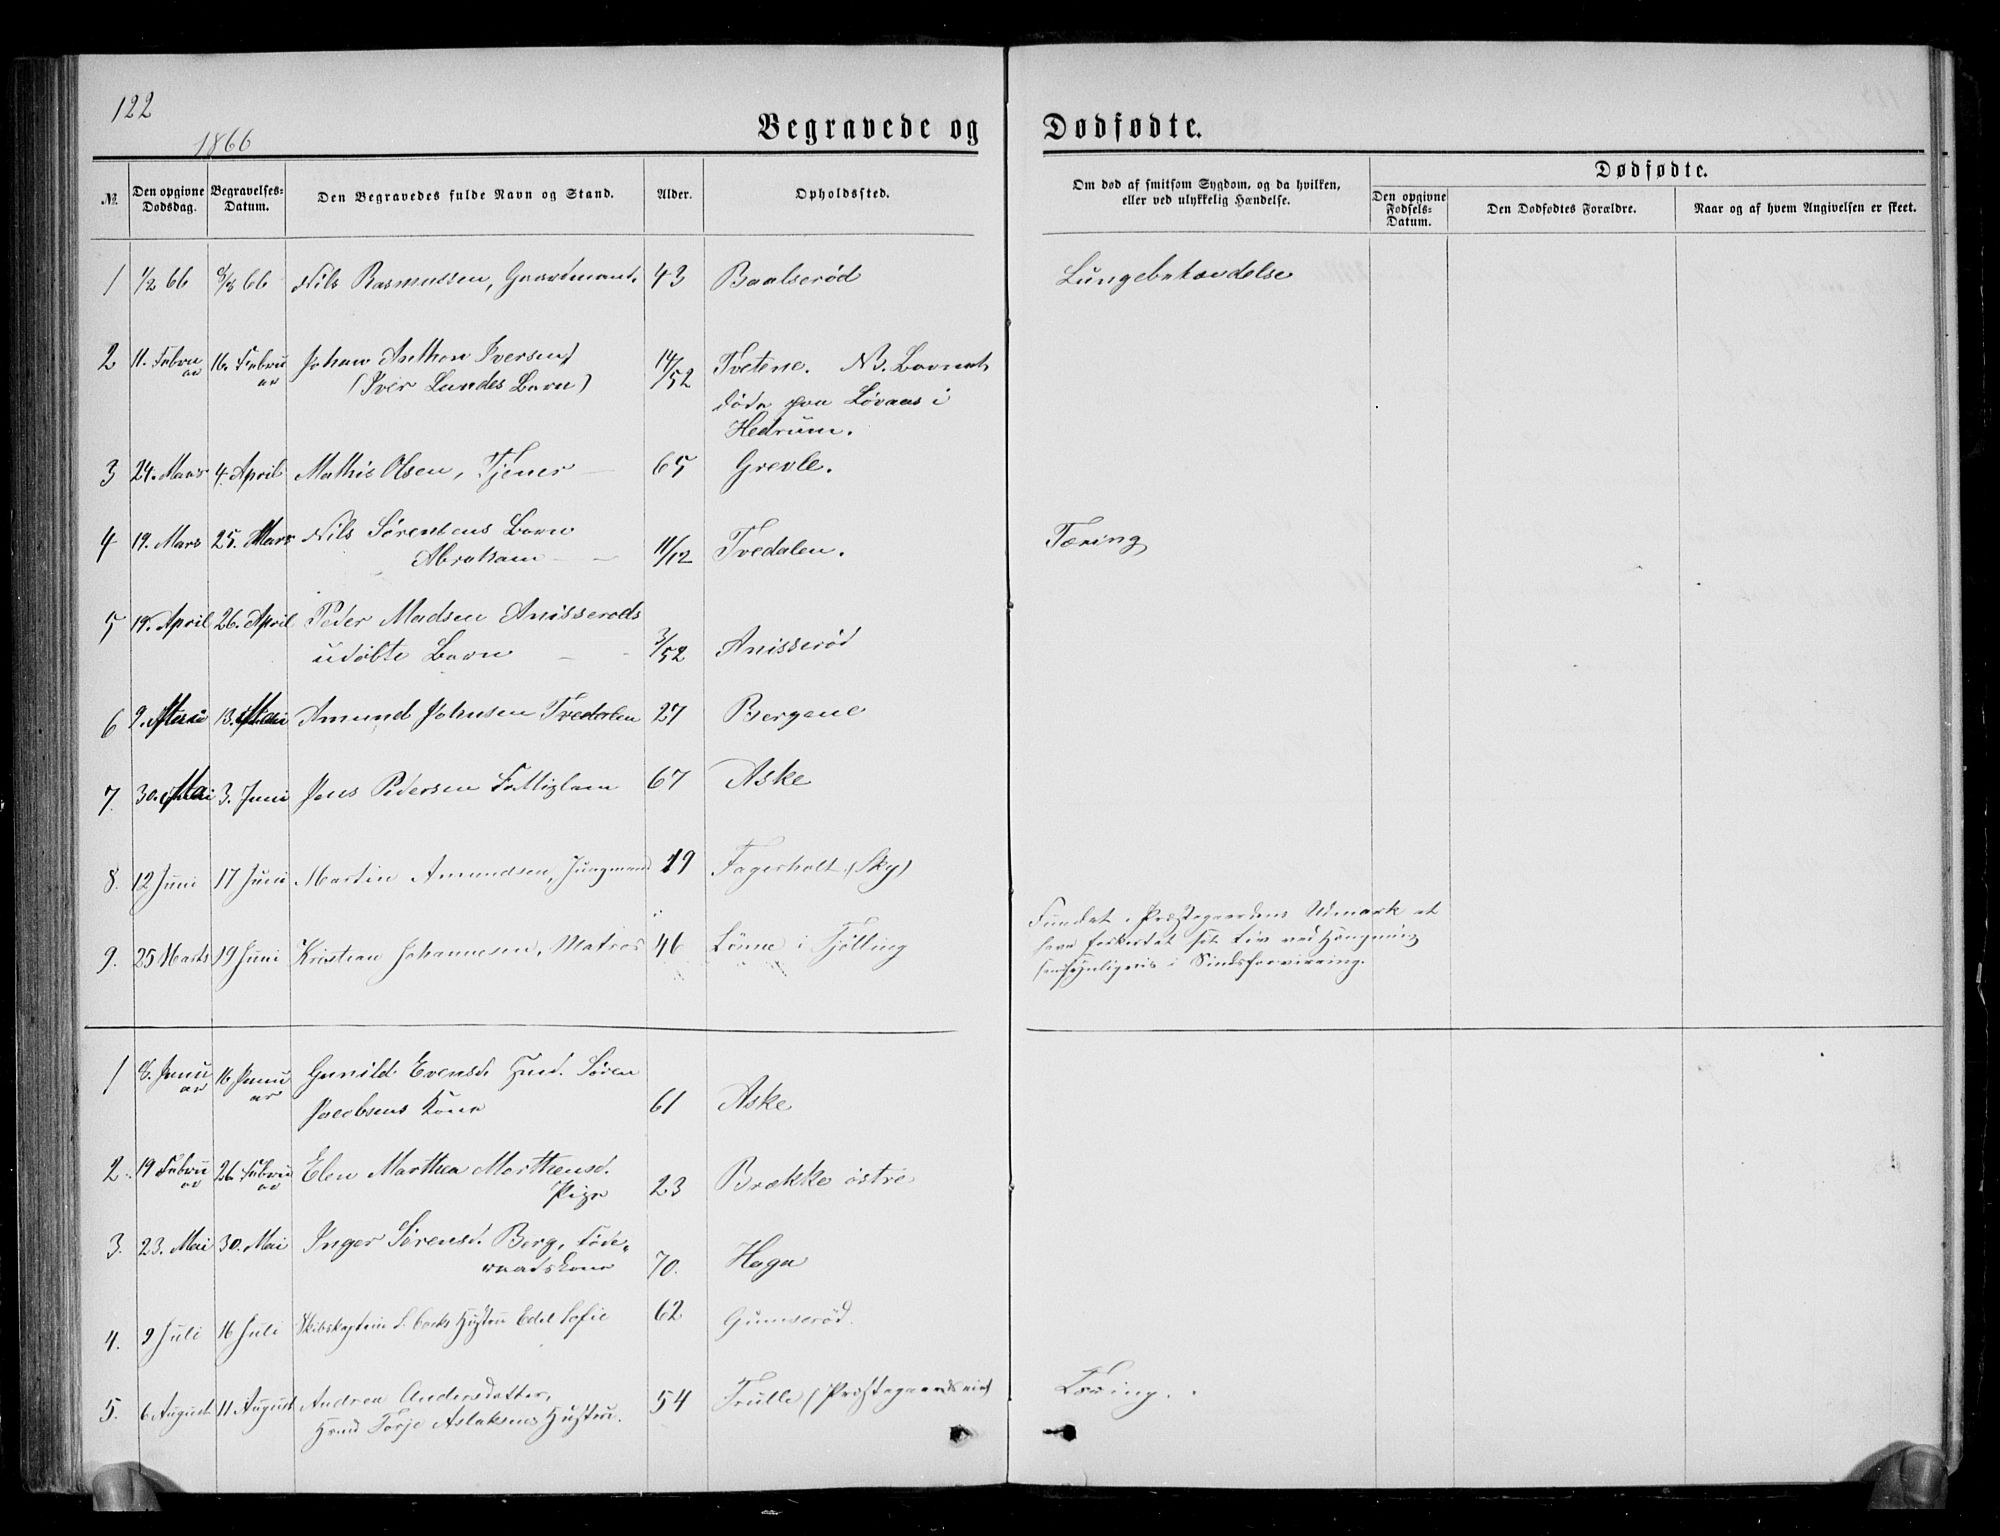 122
1866
Begravede og Dødfødte.
№. Den opgivne Dødsdag. Begravelses-Datum. Den Begravedes fulde Navn og Stand. Alder. Opholdssted. Om død af smitsom Sygdom, og da hvilken, eller ved ulykkelig Hændelse. Dødfødte.
Den opgivne Fødsels-Datum. Den Dødfødtes Forældre. Naar og af hvem Angivelsen er skeet.
1 1/2 66 8/2 66 Nils Rasmussen, Gaardmand. 43 Baalserød Lungebetændelse
2 11. Februar 16. Februar Johan Anthon Iversen 14/52 Tvetene. NB. Barnet
(Iver Lundes Barn) døde paa Løvaas i
Hedrum.
3 24. Mars 4. April Mathis Olsen, Tjener 65 Grevle.
4 19. Mars 25. Mars Nils Sørensens Barn
Abraham 11/12 Tvedalen. Tæring
5 19. April 26. April Peder Madsen Anisserøds
udøbte Barn 3/52 Anisserød
6 9. Mai 13. Mai Amund Johnsen Tvedalen 27 Bergene
7. 30. Mai 3. Juni Jens Pedersen Fattiglem 67 Aske
8. 12 Juni 17 Juni Martin Amundsen, Jungmand 19 Fagerholt (Sky)
9. 25 Marts 19 Juni Kristian Johannesen, Matros 46 Lønne i Tjølling Fundet i Præstegaardens Udmark at
have forkortet sit Liv ved Hængning
sandsynligvis i Sindsforvirring.
1 8. Januar 16. Januar Gunild Evensd. Hmd. Søren
Jacobsens Kone 61 Aske
2. 19 Februar 26. Februar Elen Marthea Marthensd.
Pige 23 Brække østre
3. 23. Mai 30. Mai Inger Sørensd. Berg, Føde-
raadskone 70. Haga
4. 9 Juli 16 Juli Skibskaptein Hustru Edel Sofie 62 Gumserød.
5. 6 August 11 August Andrea Andersdatter,
Hmd Torje Aslaksens Hustru. 54 Trulle (Præstegaards Tæring.